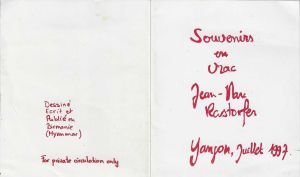 Dessiné
Ecrit et
Publié en
Birmanie
(Myanmar)
For private circulation only
Souvenirs
en
Vrac
Jean-Marc
Rastorfer
Yangon, Juillet 1997.